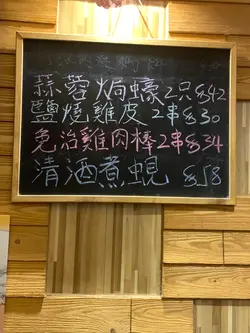 蒜蓉焗蠔2只$42
鹽燒雞皮2串$30
免治雞肉棒2串$34
清酒煮蜆$58